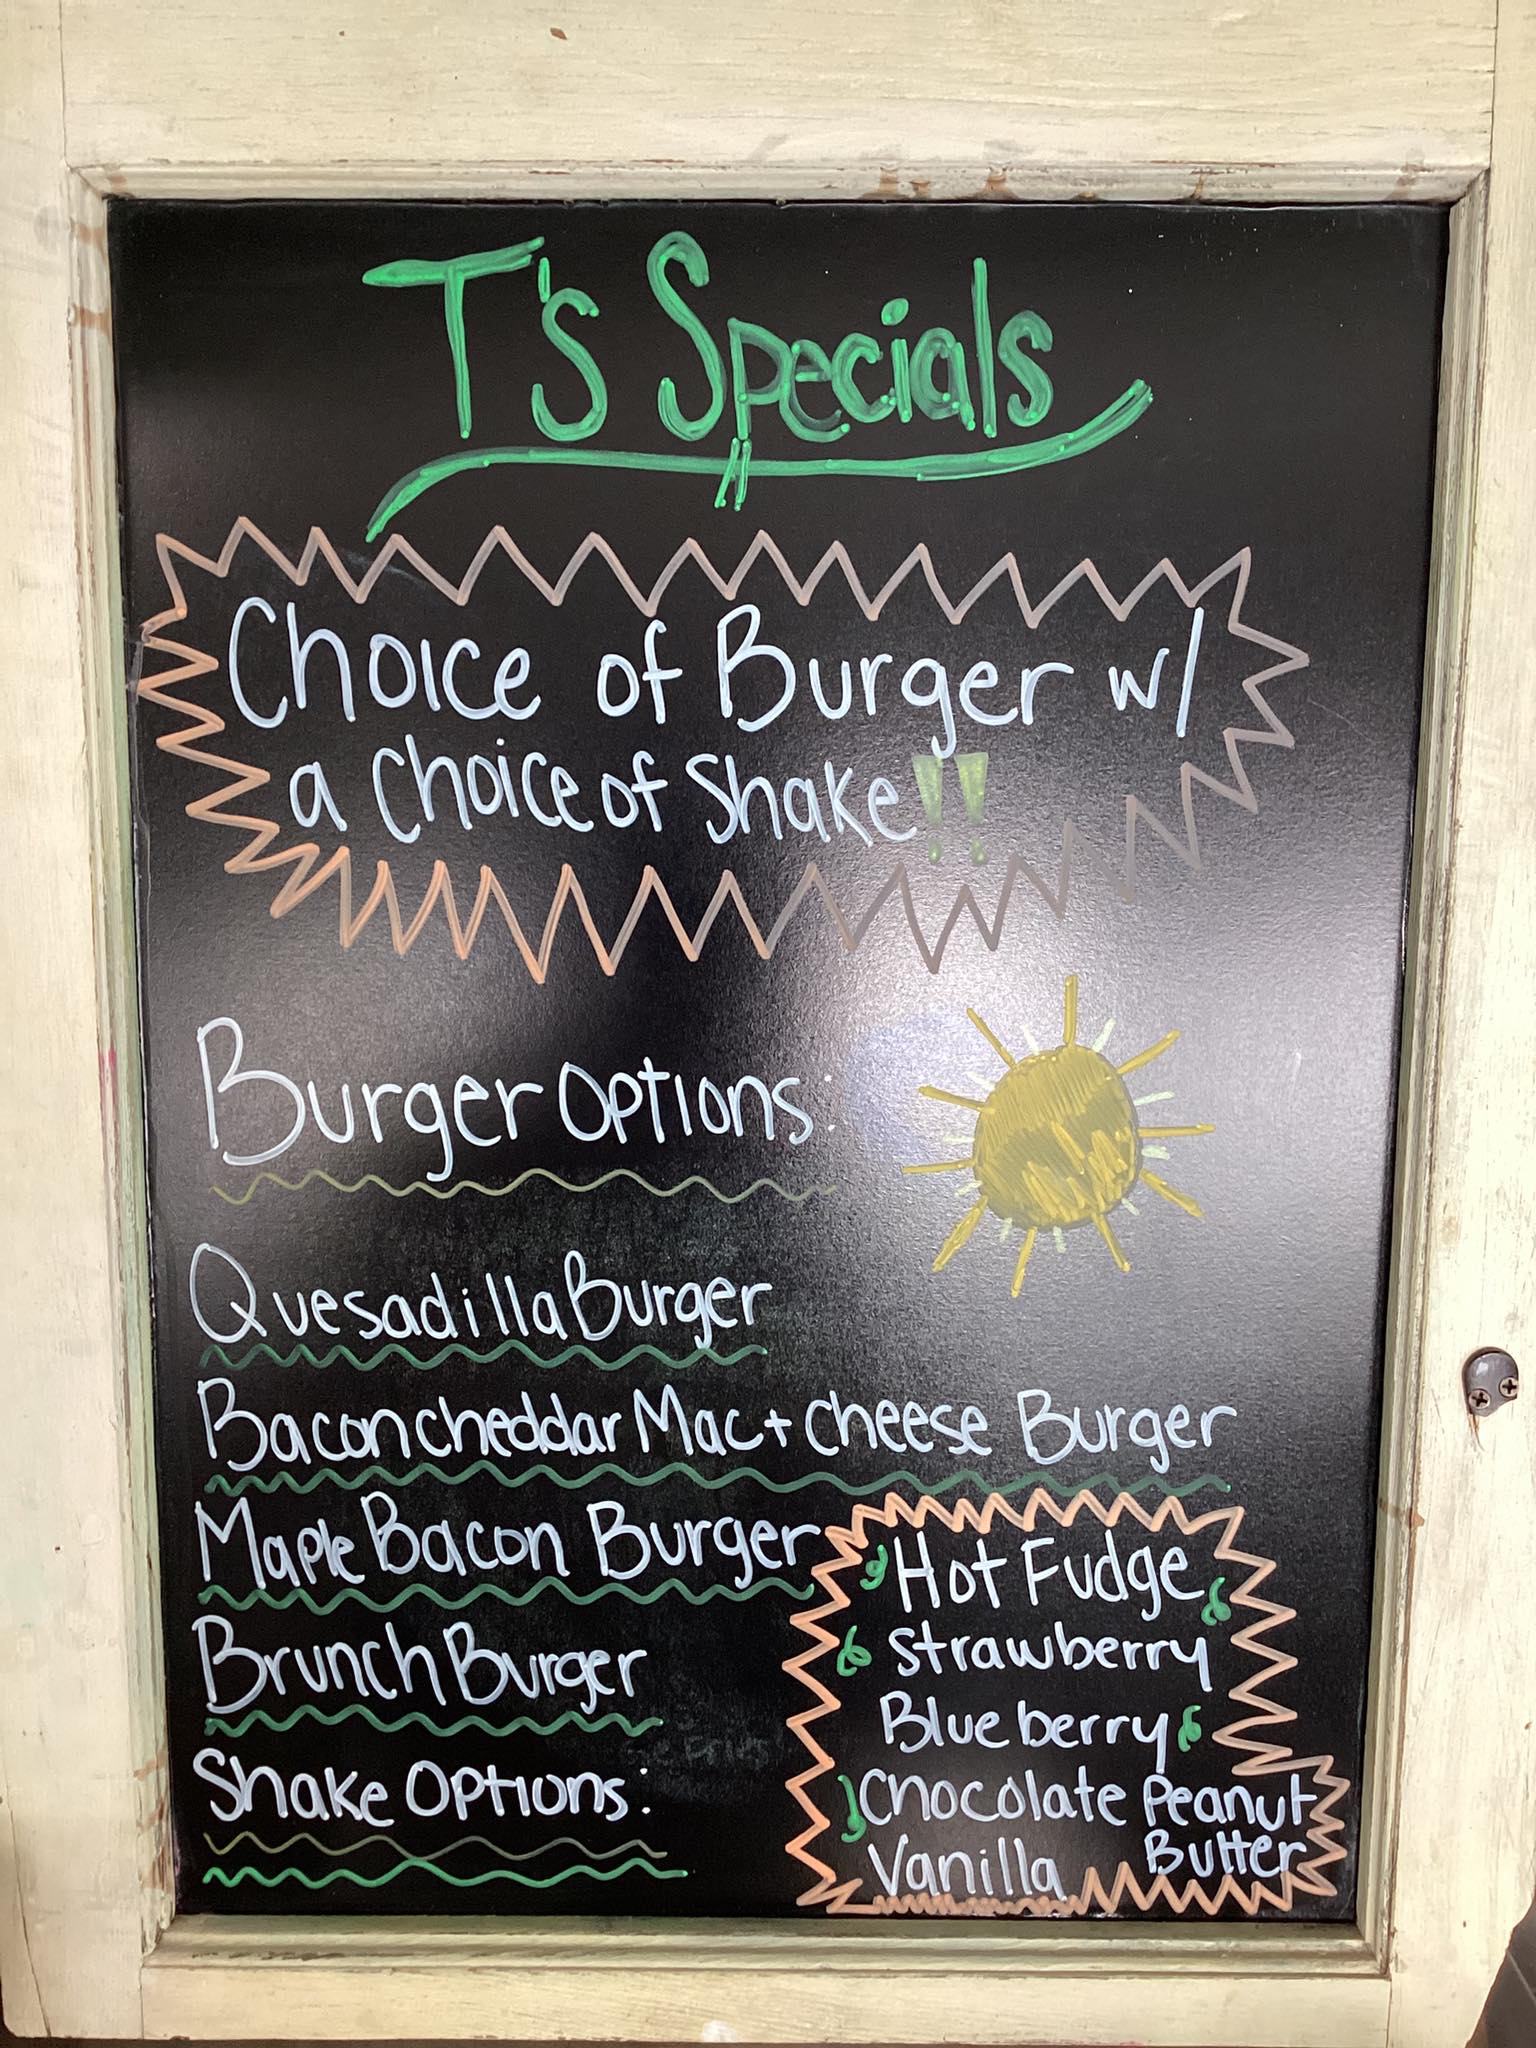 T's Specials
Choice of Burger w/
a choice of Shake!!
Burger Options:
Quesadilla Burger
Bacon cheddar Mac + cheese Burger
Maple Bacon Burger
Brunch Burger
Shake Options:
Hot Fudge
Strawberry
Blueberry
Chocolate Peanut
Butter
Vanilla